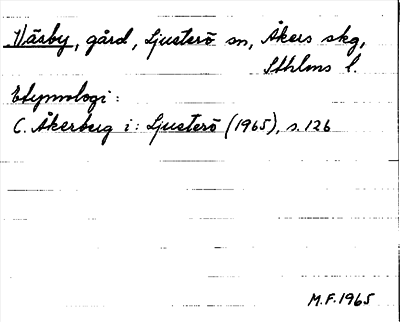 Väsby, gård, Ljusterö sn, Åkers skg,
Sthlms l.
Etymologi:
C. Åkerberg i: Ljusterö (1965), s. 126
M.F. 1965